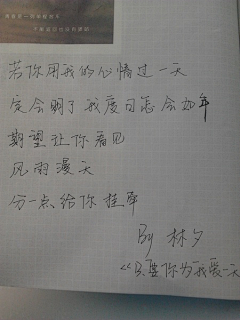 若你用我的心情过一天
定会明了我度日怎会如年
期望让你看见
风雨漫天
分一点给你挂牵
By 林夕
《只要你为我爱一天